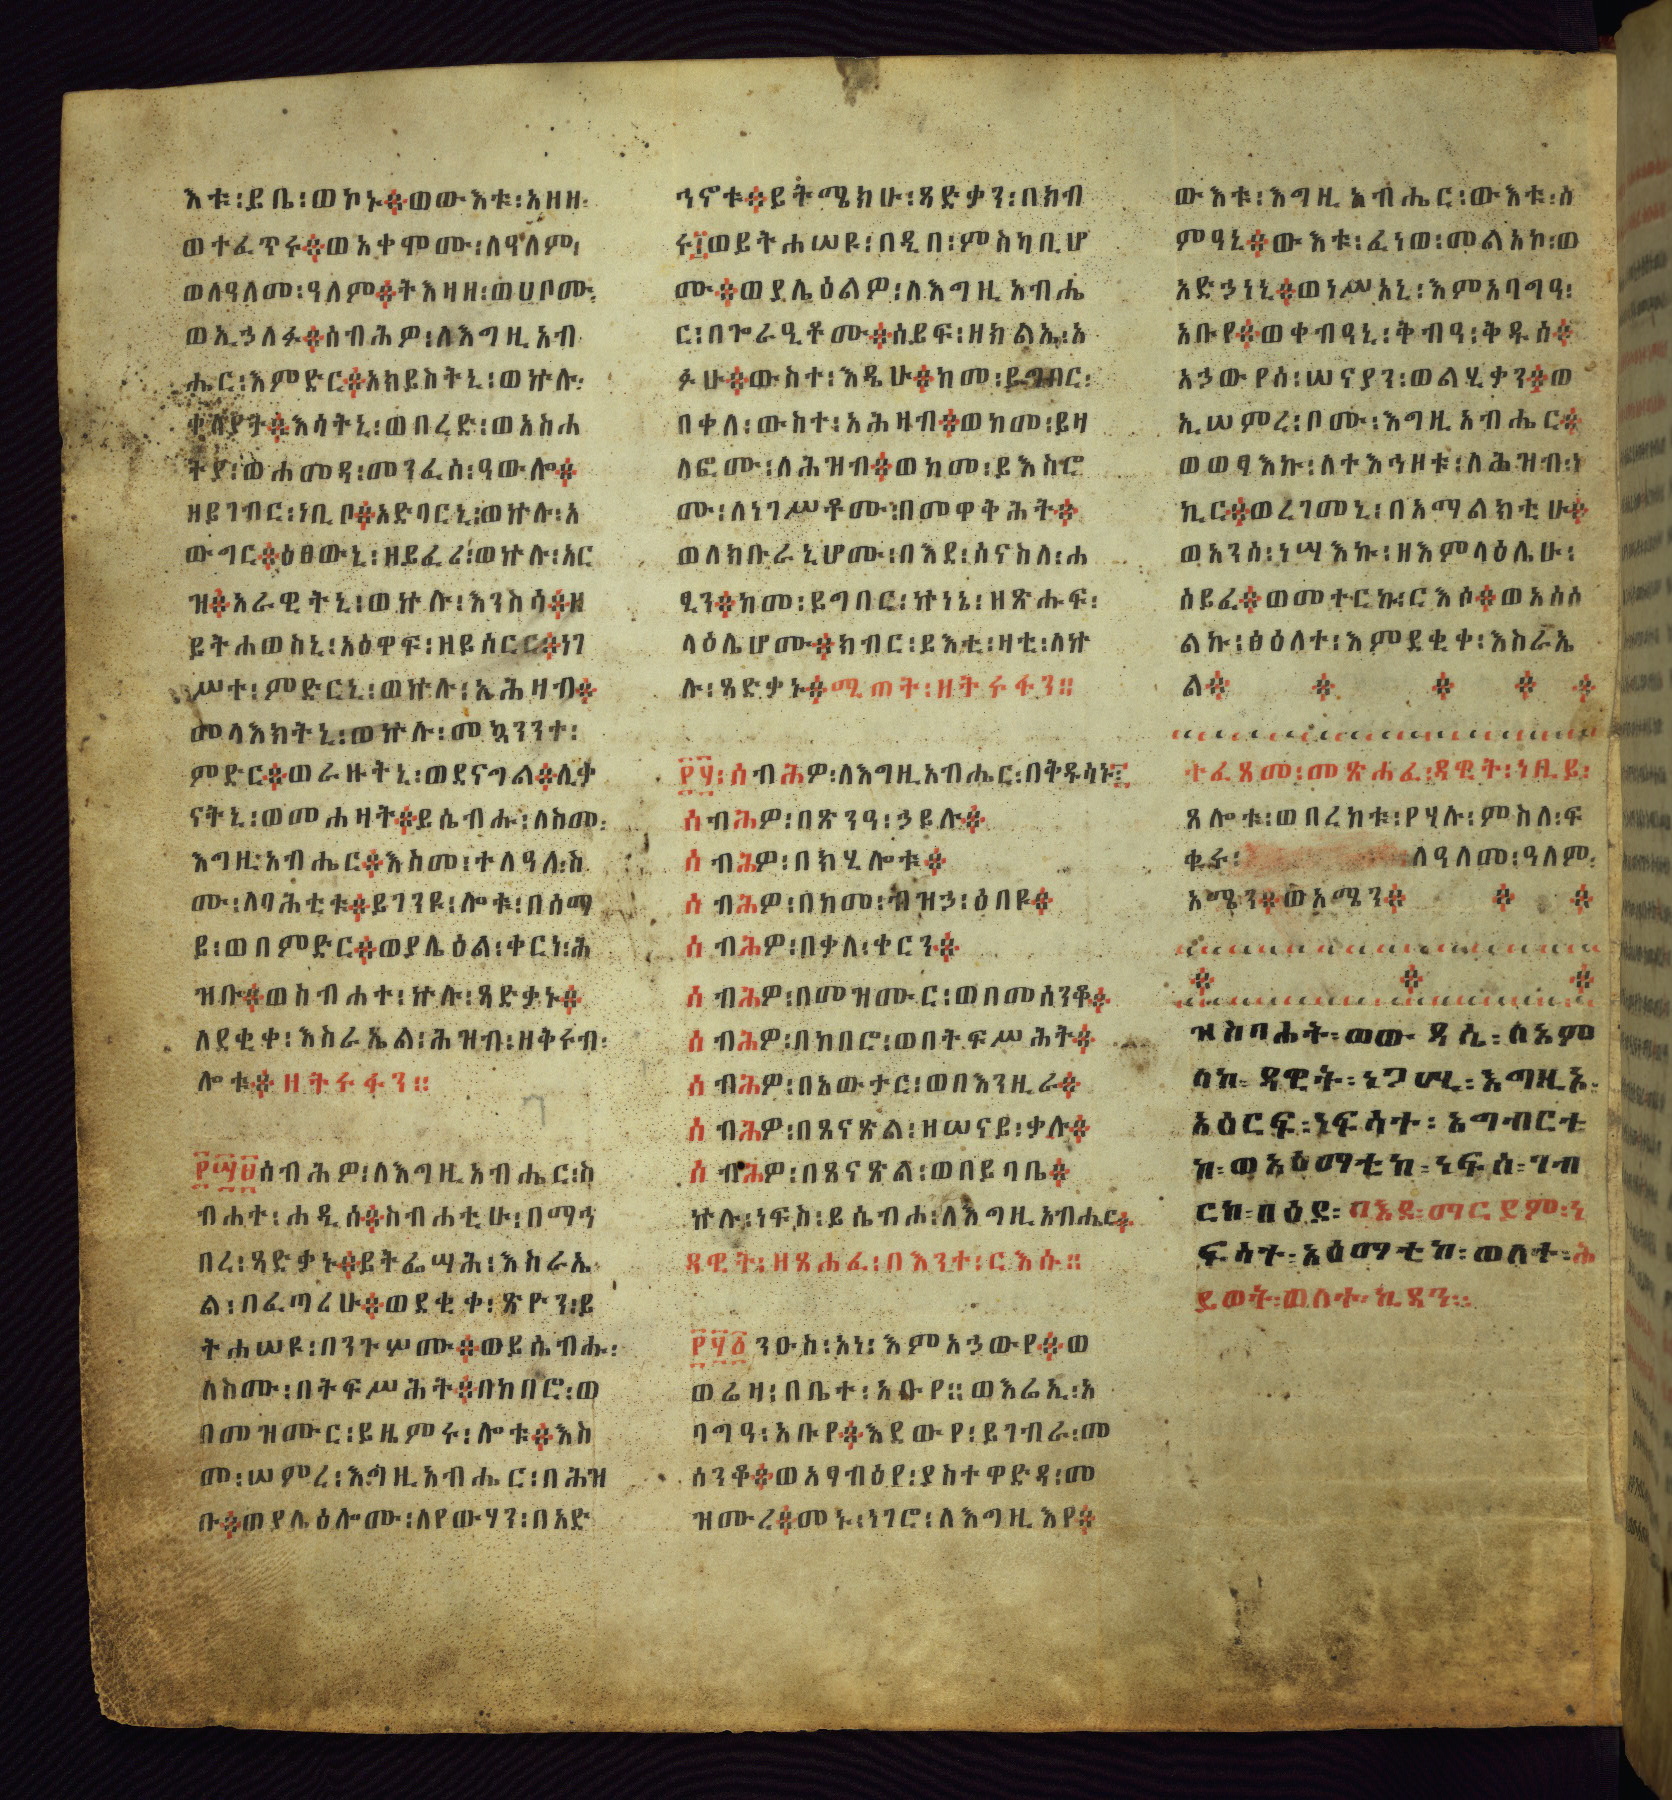 እቱ፡ይቤ፡ወኮኑ፨ወውእቱ፡አዘዘ፡
ወተፈጥሩ፨ወአቀሞሙ፡ለዓለም፡
ወለዓለመ፡ዓለም፨ትእዛዘ፡ወሀቦሙ፡
ወኢኃለፉ፨ሰብሕዎ፡ለእግዚአብ
ሔር፡እምድር፨አክይስትኒ፡ወኵሉ፡
ቀላያት፨እሳትኒ፡ወበረድ፡ወአስሐ
ትያ፡ወሐመዳ፡መንፈስ፡ዓውሎ፨
ዘይገብር፡ነቢቦ፨አድባርኒ፡ወኵሉ፡አ
ውግር፨ዕፀውኒ፡ዘይፈሪ፡ወኵሉ፡አር
ዝ፨አራዊትኒ፡ወኵሉ፡እንስሳ፨ዘ
ይትሐወስኒ፡አዕዋፍ፡ዘይሰርር፨ነገ
ሥተ፡ምድርኒ፡ወኵሉ፡ኢሕዛብ፨
መላእክትኒ፡ወኵሉ፡መኳንንተ፡
ምድር፨ወራዙትኒ፡ወደናግል፨ሊቃ
ናትኒ፡ወመሐዛት፨ይሴብሑ፡ለስመ፡
እግዚአብሔር፨እስመ፡ተለዓለ፡ስ
ሙ፡ለባሕቲቱ፨ይገንዩ፡ሎቱ፡በሰማ
ይ፡ወበምድር፨ወያሌዕል፡ቀርነ፡ሕ
ዝቡ፨ወስብሐተ፡ኵሉ፡ጻድቃኑ፨
ለደቂቀ፡እስራኤል፡ሕዝብ፡ዘቅሩብ፡
ሎቱ፨ዘትሩፋን።
፻፵፱ሰብሕዎ፡ለእግዚአብሔር፡ስ
ብሐተ፡ሐዲሰ፨ስብሐቲሁ፡በማኅ
በረ፡ጻድቃኑ፨ይትፌሣሕ፡እስራኤ
ል፡በፈጣሪሁ፨ወደቂቀ፡ጽዮን፡ይ
ትሐሠዩ፡በንጉሦሙ፨ወይሴብሑ፡
ለስሙ፡በትፍሥሕት፨በከበሮ፡ወ
በመዝሙር፡ይዜምሩ፡ሎቱ፨እስ
መ፡ሠምረ፡እግዚአብሔር፡በሕዝ
ቡ፨ወያሌዕሎሙ፡ለየውሃን፡በአድ
ኅኖቱ፨ይትሜክሁ፡ጻድቃን፡በክብ
ር፡ወይትሐሠዩ፡በዲበ፡ምስካቢሆ
ሙ፨ወያሌዕልዎ፡ለእግዚአብሔ
ር፡በጕራዒቶሙ፨ሰይፍ፡ዘክልኤ፡አ
ፉሁ፨ውስተ፡እዴሁ፨ከመ፡ይግበር፡
በቀለ፡ውስተ፡አሕዛብ፨ወከመ፡ይዛ
ለፎሙ፡ለሕዝብ፨ወከመ፡ይእስሮ
ሙ፡ለነገሥቶሙ፡በመዋቅሕት፨
ወለክቡራኒሆሙ፡በእደ፡ሰናስለ፡ሐ
ፂን፨ከመ፡ይግበር፡ኵነኔ፡ዘጽሑፍ፡
ላዕሌሆሙ፨ክብር፡ይእቲ፡ዛቲ፡ለኵ
ሉ፡ጻድቃኑ፨ሚጠት፡ዘትሩፋን።
፻፶፡ሰብሕዎ፡ለእግዚአብሔር፡በቅዱሳኑ፨
ሰብሕዎ፡በጽንዓ፡ኃይሉ፨
ሰብሕዎ፡በክሂሎቱ፨
ሰብሕዎ፡በከመ፡ብዝኃ፡ዕበዩ፨
ሰብሕዎ፡በቃለ፡ቀርን፨
ሰብሕዎ፡በመዝሙር፡ወበመሰንቆ፨
ሰብሕዎ፡በከበሮ፡ወበትፍሥሕት፨
ሰብሕዎ፡በአውታር፡ወበእንዚራ፨
ሰብሕዎ፡በጸናጽል፡ዘሠናይ፡ቃሉ፨
ሰብሕዎ፡በጸናጽል፡ወበይባቤ፨
ኵሉ፡ነፍስ፡ይሴብሐ፡ለእግዚአብሔር፨
ዳዊት፡ዘጸሐፈ፡በእንተ፡ርእሱ።
፻፶፩ንዑስ፡አነ፡እምአኃውየ፨ወ
ወሬዛ፡በቤተ፡አቡየ።ወእሬኢ፡አ
ባግዓ፡አቡየ፨እደውየ፡ይገብራ፡መ
ሰንቆ፨ወአፃብዕየ፡ያስተዋድዳ፡መ
ዝሙረ፨መኑ፡ነገሮ፡ለእግዚእየ፨
ውእቱ፡እግዚአብሔር፡ውእቱ፡ሰ
ምዓኒ፨ውእቱ፡ፈነወ፡መልአኮ፡ወ
አድኃነኒ፨ወነሥአኒ፡እምአባግዓ፡
አቡየ፨ወቀብዓኒ፡ቅብዓ፡ቅዱሰ፨
አኃውየሰ፡ሠናያን፡ወልሂቃን፨ወ
ኢሠምረ፡ቦሙ፡እግዚአብሔር፨
ወወፃእኩ፡ለተእኅዞቱ፡ለሕዝብ፡ነ
ኪር፨ወረገመኒ፡በአማልክቲሁ፨
ወአንሰ፡ነሣእኩ፡ዘእምላዕሌሁ፡
ሰይፈ፨ወመተርኩ፡ርእሶ፨ወአሰሰ
ልኩ፡ፅዕለተ፡እምደቂቀ፡እስራኤ
ል፨
ተፈጸመ፡መጽሐፈ፡ዳዊት፡ነቢይ፡
ጸሎቱ፡ወበረከቱ፡የሃሉ፡ምስለ፡ፍ
ቁሩ፡ ለዓለመ፡ዓለም፡
አሜን፨ወአሜን፨
ዝስባሔት፡ወው ዳሴ፡ሰአም
ላክ፡ዳዊት፡ነጋሢ፡እግዚኦ፡
አዕርፍ፡ነፍሳተ፡አግብርቲ
ከ፡ወአዕማቲከ፡ነፍሰ፡ገብ
ርከ፡በዕደ፡ በእደ፡ማርያም፡ነ
ፍሳተ፡አዕማቲከ፡ወለተ፡ሕ
ይወት፡ወለተ፡ኪዳን።